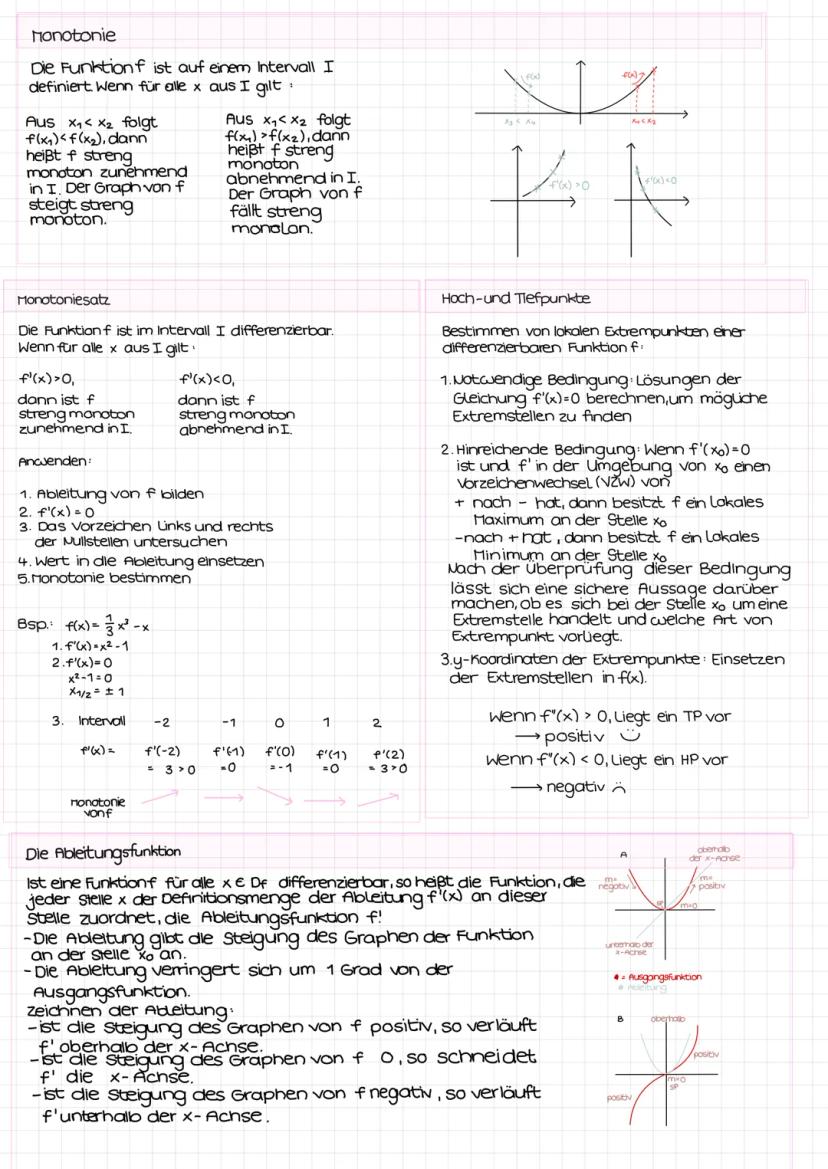 Monotonie
Die Funktion f ist auf einem Intervall I
definiert. Wenn für alle x aus I gilt :
Aus x₁< x₂ folgt
f(x₁)<f(x₂), dann
heißt f streng
monoton zunehmend
in I. Der Graph von f
steigt streng
monoton.
Aus x₁< x₂ folgt
f(x₁) >f(x₂), dann
heißt f streng
monoton
abnehmend in I.
Der Graph von f
fällt streng
monoton.
f(x)
f(x)
x₃ < x₄
x₁ < x₂
f'(x) > 0
f'(x)<0
Monotoniesatz
Die Funktion f ist im Intervall I differenzierbar.
Wenn für alle x aus I gilt :
f'(x)>0,
dann ist f
streng monoton
zunehmend in I.
f'(x)<0,
dann ist f
streng monoton
abnehmend in I.
Anwenden:
1. Ableitung von f bilden
2. f'(x) = 0
3. Das Vorzeichen links und rechts
der Nullstellen untersuchen
4. Wert in die Ableitung einsetzen
5. Monotonie bestimmen
Bsp.: f(x) = 1/3 x³ -x
1. f'(x)=x² -1
2. f'(x)= 0
x²-1 = 0
x1/2 = ± 1
3. Intervall -2 -1 0 1 2
f'(x) = f'(-2) f'(-1) f'(0) f'(1) f'(2)
= 3 >0 =0 = -1 =0 = 3 >0
Monotonie
von f
Hoch-und Tiefpunkte
Bestimmen von lokalen Extrempunkten einer
differenzierbaren Funktion f:
1. Notwendige Bedingung: Lösungen der
Gleichung f'(x)=0 berechnen, um mögliche
Extremstellen zu finden
2. Hinreichende Bedingung: Wenn f'(x₀) = 0
ist und f' in der Umgebung von x₀ einen
Vorzeichenwechsel (VZW) von
+ nach - hat, dann besitzt f ein lokales
Maximum an der Stelle x₀
-nach + hat, dann besitzt f ein lokales
Minimum an der Stelle x₀
Nach der Überprüfung dieser Bedingung
lässt sich eine sichere Aussage darüber
machen, ob es sich bei der Stelle x₀ um eine
Extremstelle handelt und welche Art von
Extrempunkt vorliegt.
3. y-Koordinaten der Extrempunkte: Einsetzen
der Extremstellen in f(x).
Wenn f"(x) > 0, liegt ein TP vor
→ positiv
Wenn f"(x) < 0, liegt ein HP vor
→ negativ
Die Ableitungsfunktion
Ist eine Funktion f für alle x ∈ Df differenzierbar, so heißt die Funktion, die
jeder Stelle x der Definitionsmenge der Ableitung f'(x) an dieser
Stelle zuordnet, die Ableitungsfunktion f!
-Die Ableitung gibt die Steigung des Graphen der Funktion
an der Stelle x₀ an.
- Die Ableitung verringert sich um 1 Grad von der
Ausgangsfunktion.
Zeichnen der Ableitung:
-ist die Steigung des Graphen von f positiv, so verläuft
f' oberhalb der x-Achse.
-ist die Steigung des Graphen von f 0, so schneidet
f' die x-Achse.
-ist die Steigung des Graphen von f negativ, so verläuft
f' unterhalb der x-Achse.
A
oberhalb
der x-Achse
m=
negativ
m=
positiv
SP
m=0
unterhalb der
x-Achse
# = Ausgangsfunktion
# Ableitung
B
oberhalb
positiv
m=0
SP
positiv